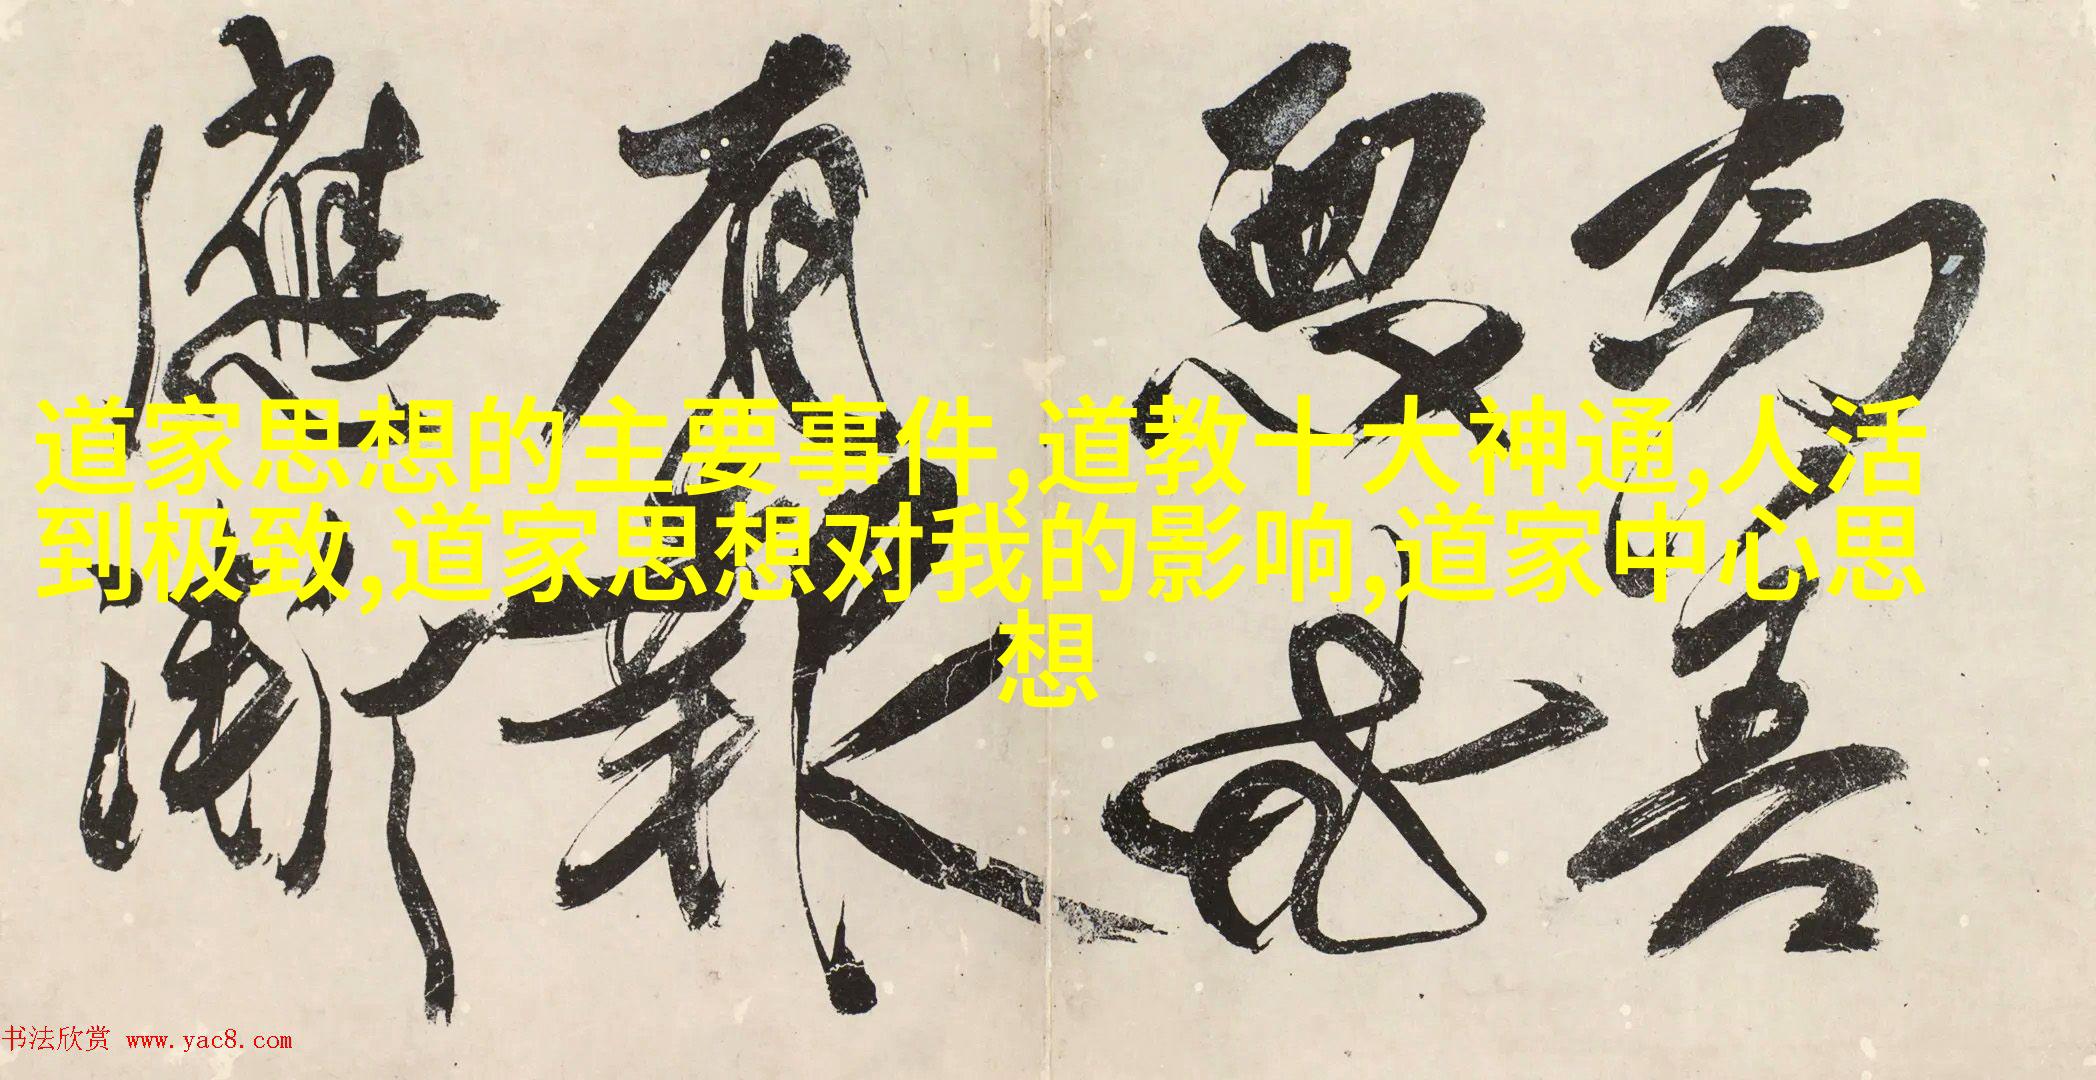 道家思想的主要事件,道教十大神通,人活
到极致,道家思想对我的影响,道家中心思
想
为善
恶或
有报
应渐
书法欣赏 www.yac8.com